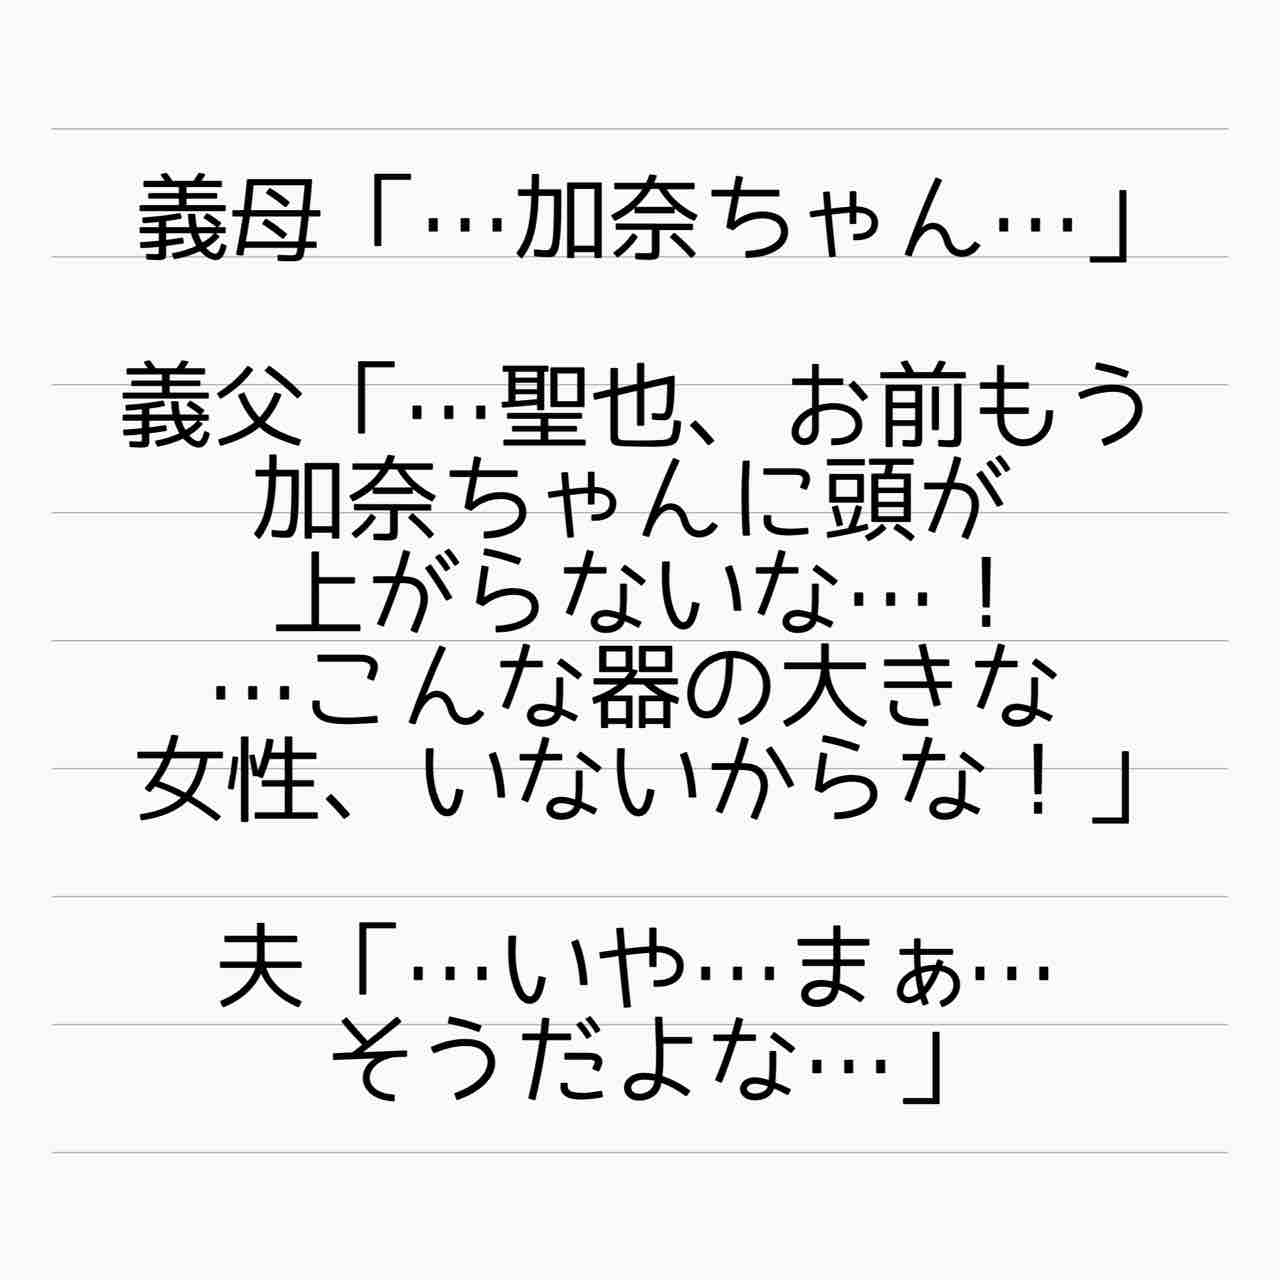 義母「…加奈ちゃん…」
義父「…聖也、お前もう
加奈ちゃんに頭が
上がらないな…！
…こんな器の大きな
女性、いないからな！」
夫「…いや…まぁ…
そうだよな…」